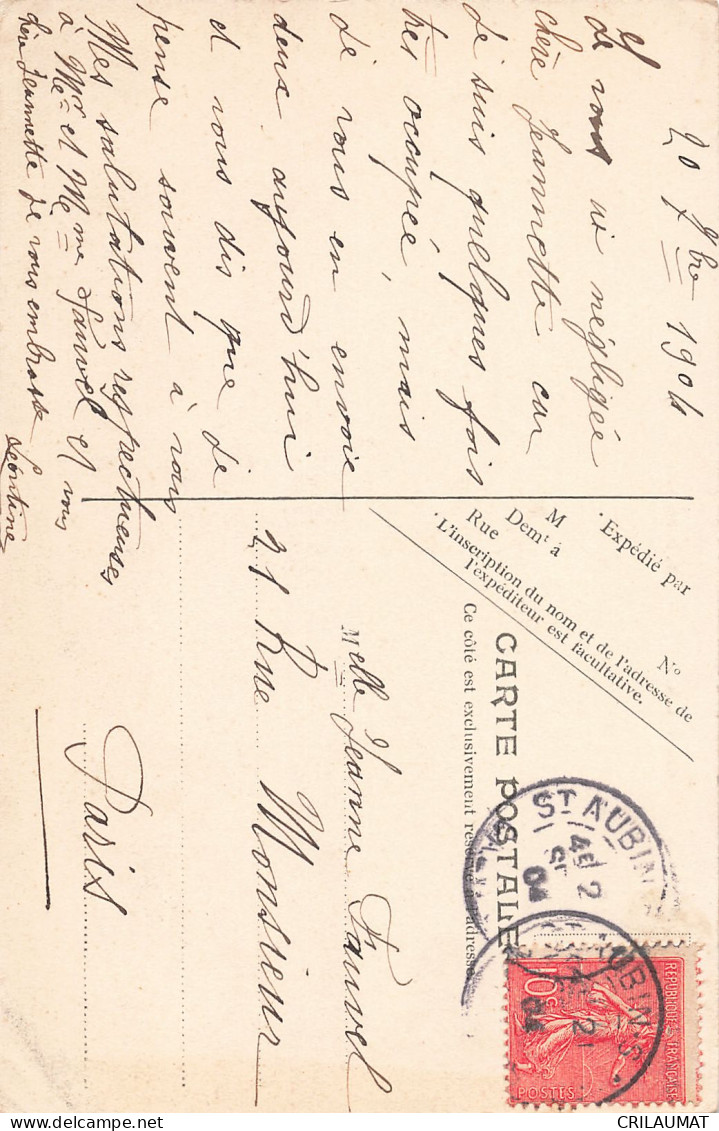 20 7bre 1904
Je vous ai négligée
chère Jeannette car
je suis quelques fois
très occupée, mais
je vous en envoie
deux aujourd'hui
et vous dis que je
pense souvent à vous
Mes salutations respectueuses
à Mr et Mme Fauvel et vous
chère Jeannette je vous embrasse
Léontine
Expédié par
M
Demt à
Rue
No
L'inscription du nom et de l'adresse de
l'expéditeur est facultative.
CARTE POSTALE
Ce côté est exclusivement réservé à l'adresse
Melle Jeanne Fauvel
21 Rue Monsieur
Paris
ST AUBIN
04
REPUBLIQUE FRANÇAISE
10c
POSTES
UBIN-S
04
CRILAUMAT